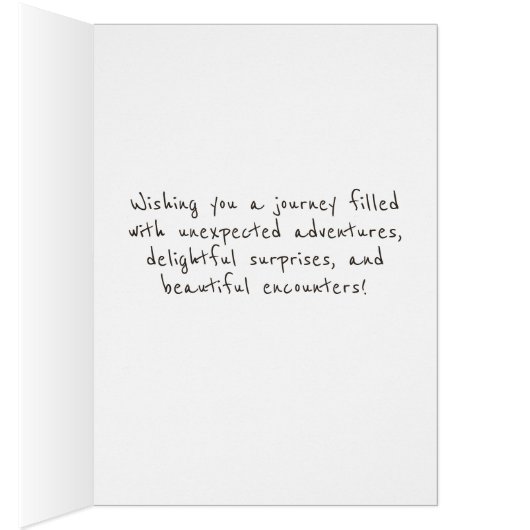 Wishing you a journey filled
with unexpected adventures,
delightful surprises, and
beautiful encounters!